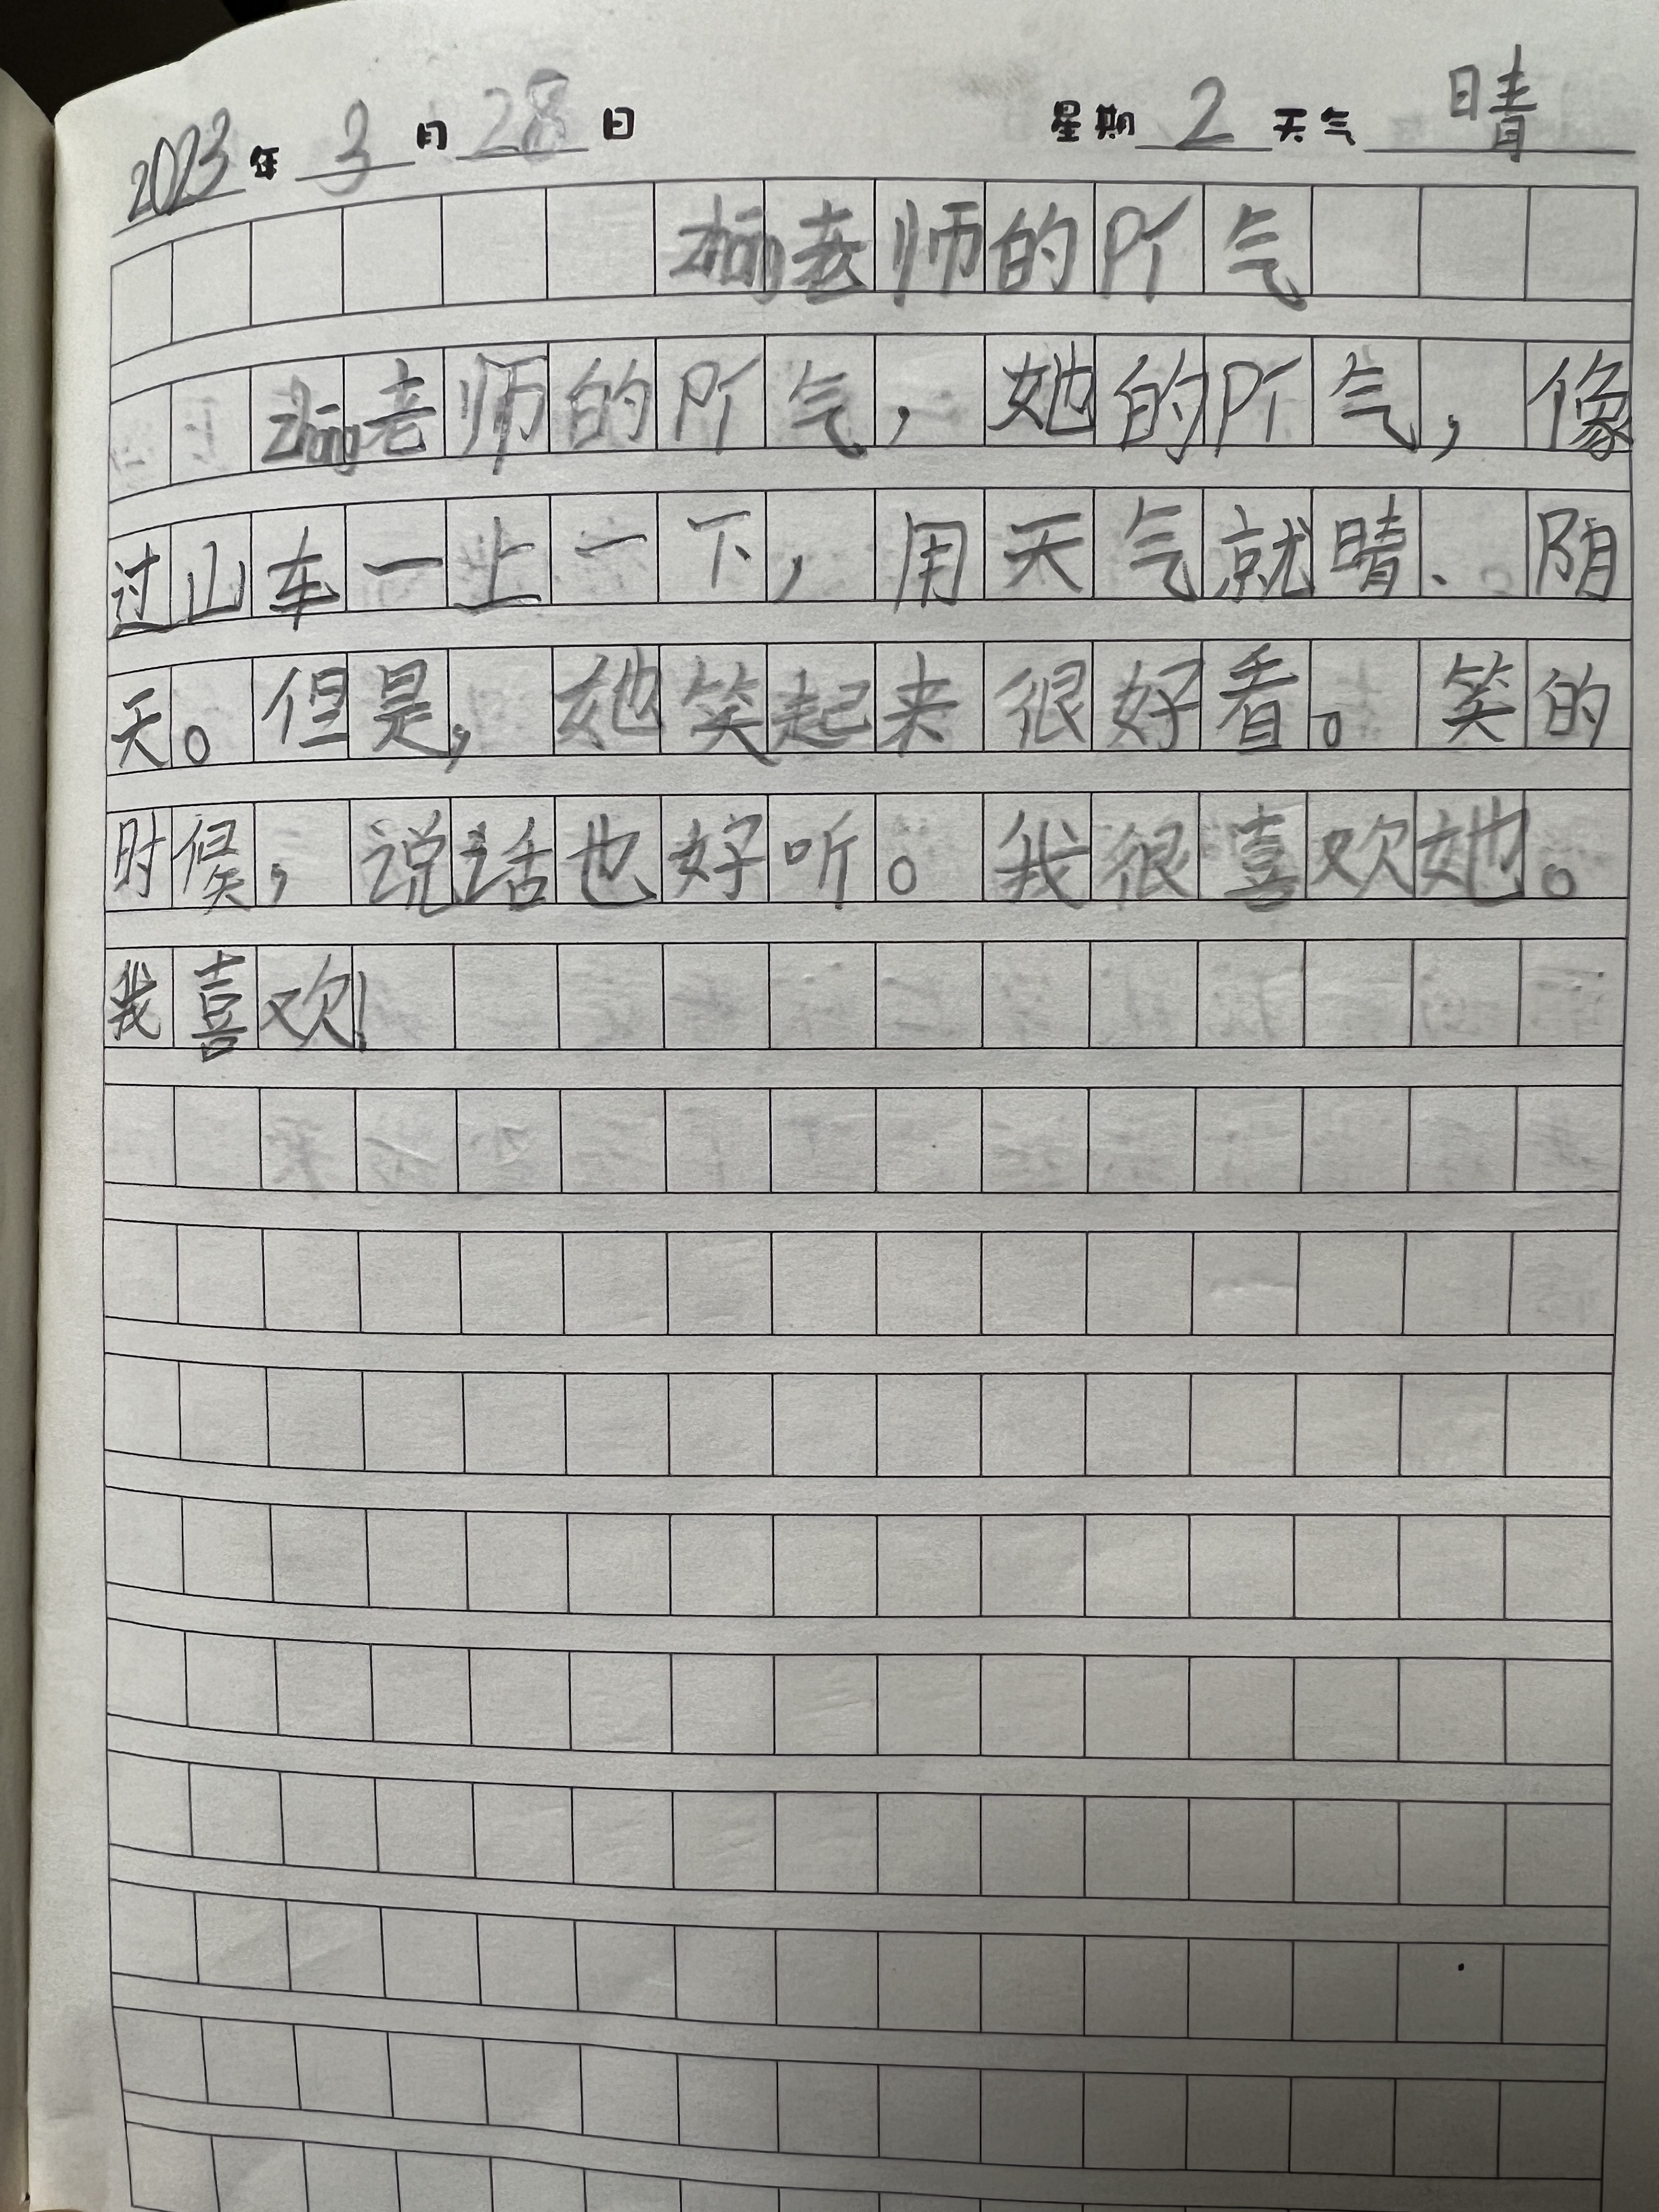 2023年 3 月 28 日 星期 2 天气 晴
老师的Pí气
zhong老师的Pí气，她的Pí气，像
过山车一上一下，用天气就晴、阴
天。但是，她笑起来很好看。笑的
时候，说话也好听。我很喜欢她。
我喜欢！